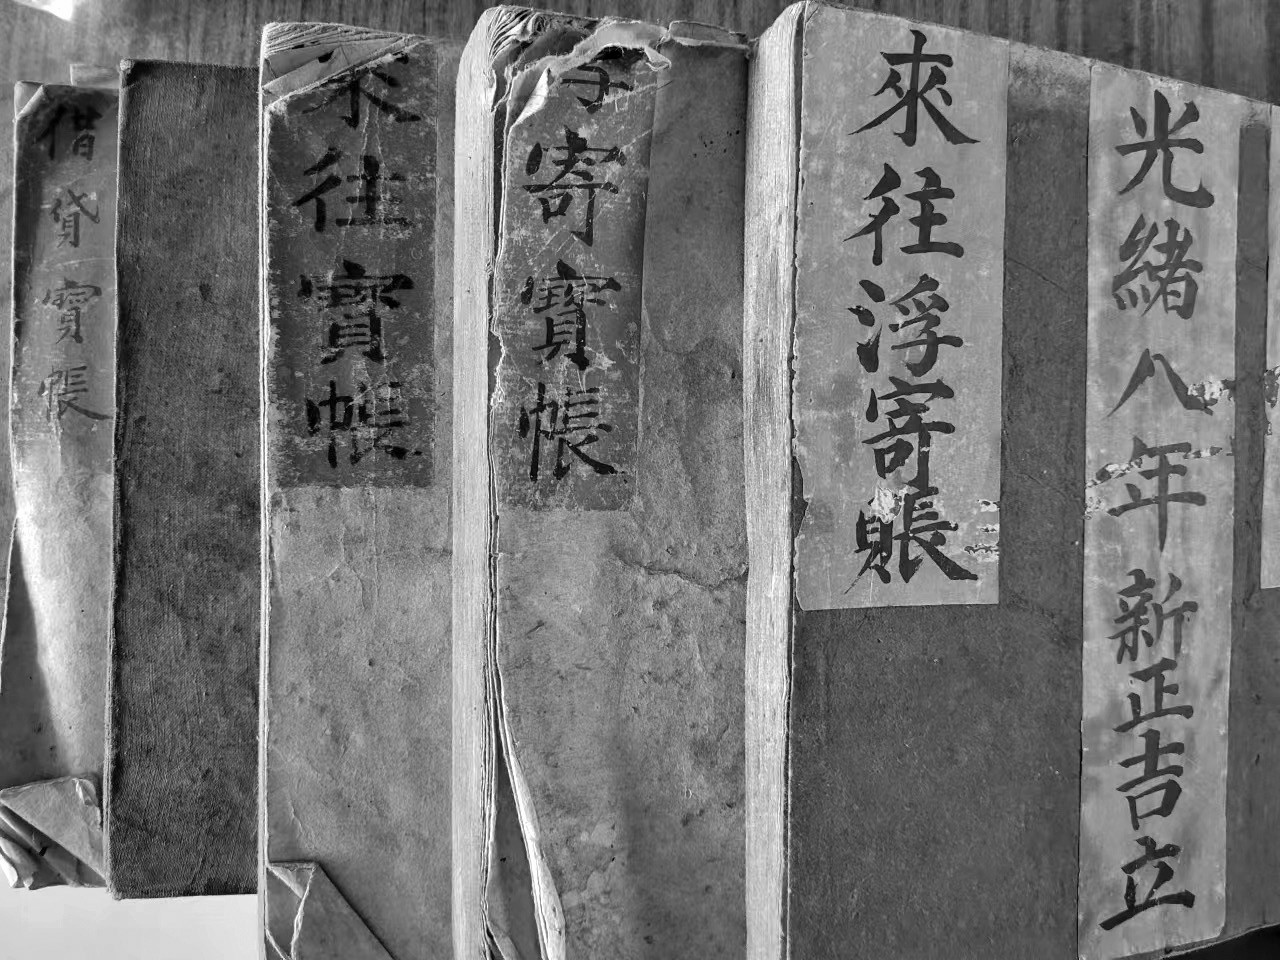 光緒八年新正吉立
來往浮寄賬
寄寶帳
來往寶帳
借貸寶帳